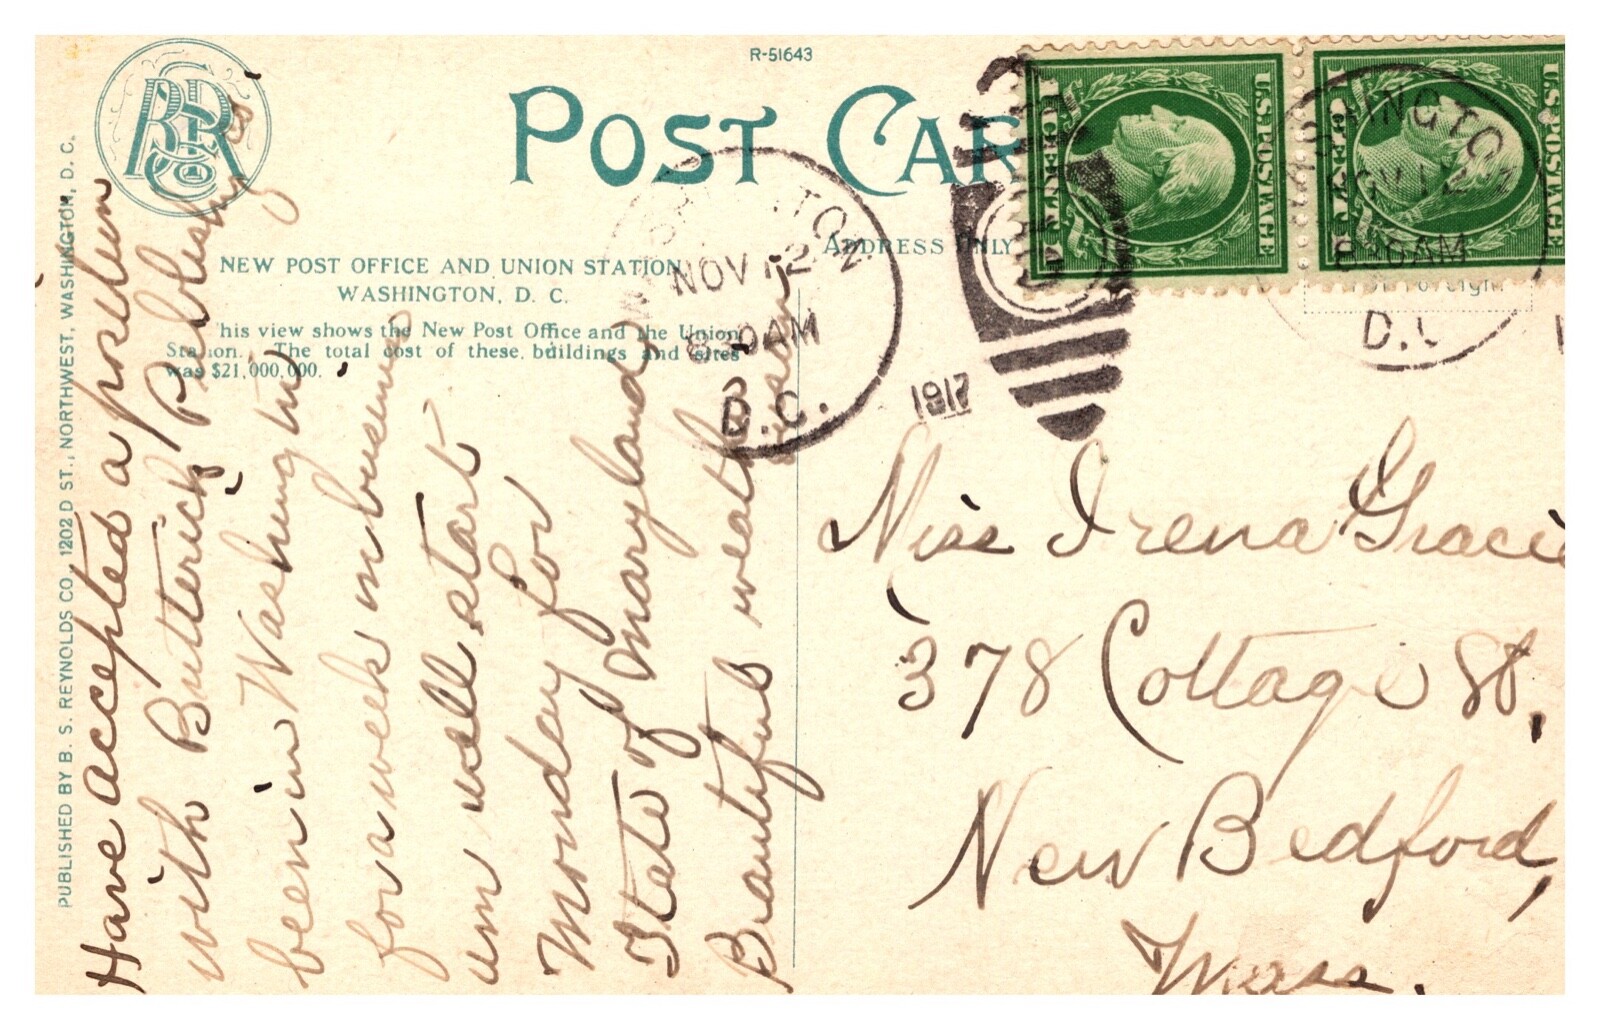 R-51643
POST CAR
ADDRESS ONLY
NEW POST OFFICE AND UNION STATION,
WASHINGTON, D. C.
his view shows the New Post Office and the Union
Station. The total cost of these buildings and sites
was $21,000,000.
PUBLISHED BY B. S. REYNOLDS CO., 1202 D ST., NORTHWEST, WASHINGTON, D. C.
BSR Co
U.S. POSTAGE
U.S. POSTAGE
NOV 12
830 AM
D.C.
1917
INGTON
NOV 12
830 AM
D.C
Have accepted a position
with Butterick Publishing
been in Washington
for a week in business
um will start
Monday for
State of Maryland
Beautiful weather
Miss Irena Gracie
378 Cottage St.,
New Bedford,
Mass.